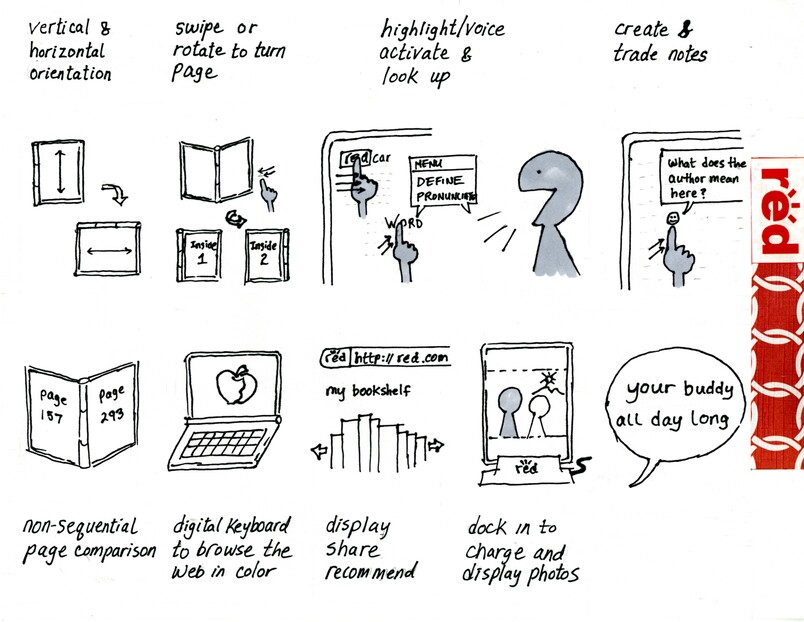 vertical &
horizontal
orientation
swipe or
rotate to turn
page
highlight/voice
activate &
look up
create &
trade notes
red car
MENU
DEFINE
PRONUNCIATE
WORD
Inside
1
Inside
2
What does the
author mean
here?
rëd
page
157
page
293
rëd http://red.com
my bookshelf
rëd
your buddy
all day long
non-sequential
page comparison
digital keyboard
to browse the
web in color
display
share
recommend
dock in to
charge and
display photos